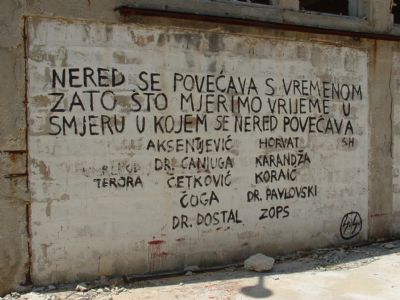 NERED SE POVEĆAVA S VREMENOM
ZATO ŠTO MJERIMO VRIJEME U
SMJERU U KOJEM SE NERED POVEĆAVA
AKSENTJEVIĆ HORVAT SH
DR. CANJUGA KARANDŽA
TERJRA ČETKOVIĆ KORAIĆ
ĆOGA DR. PAVLOVSKI
DR. DOSTAL ZOPS